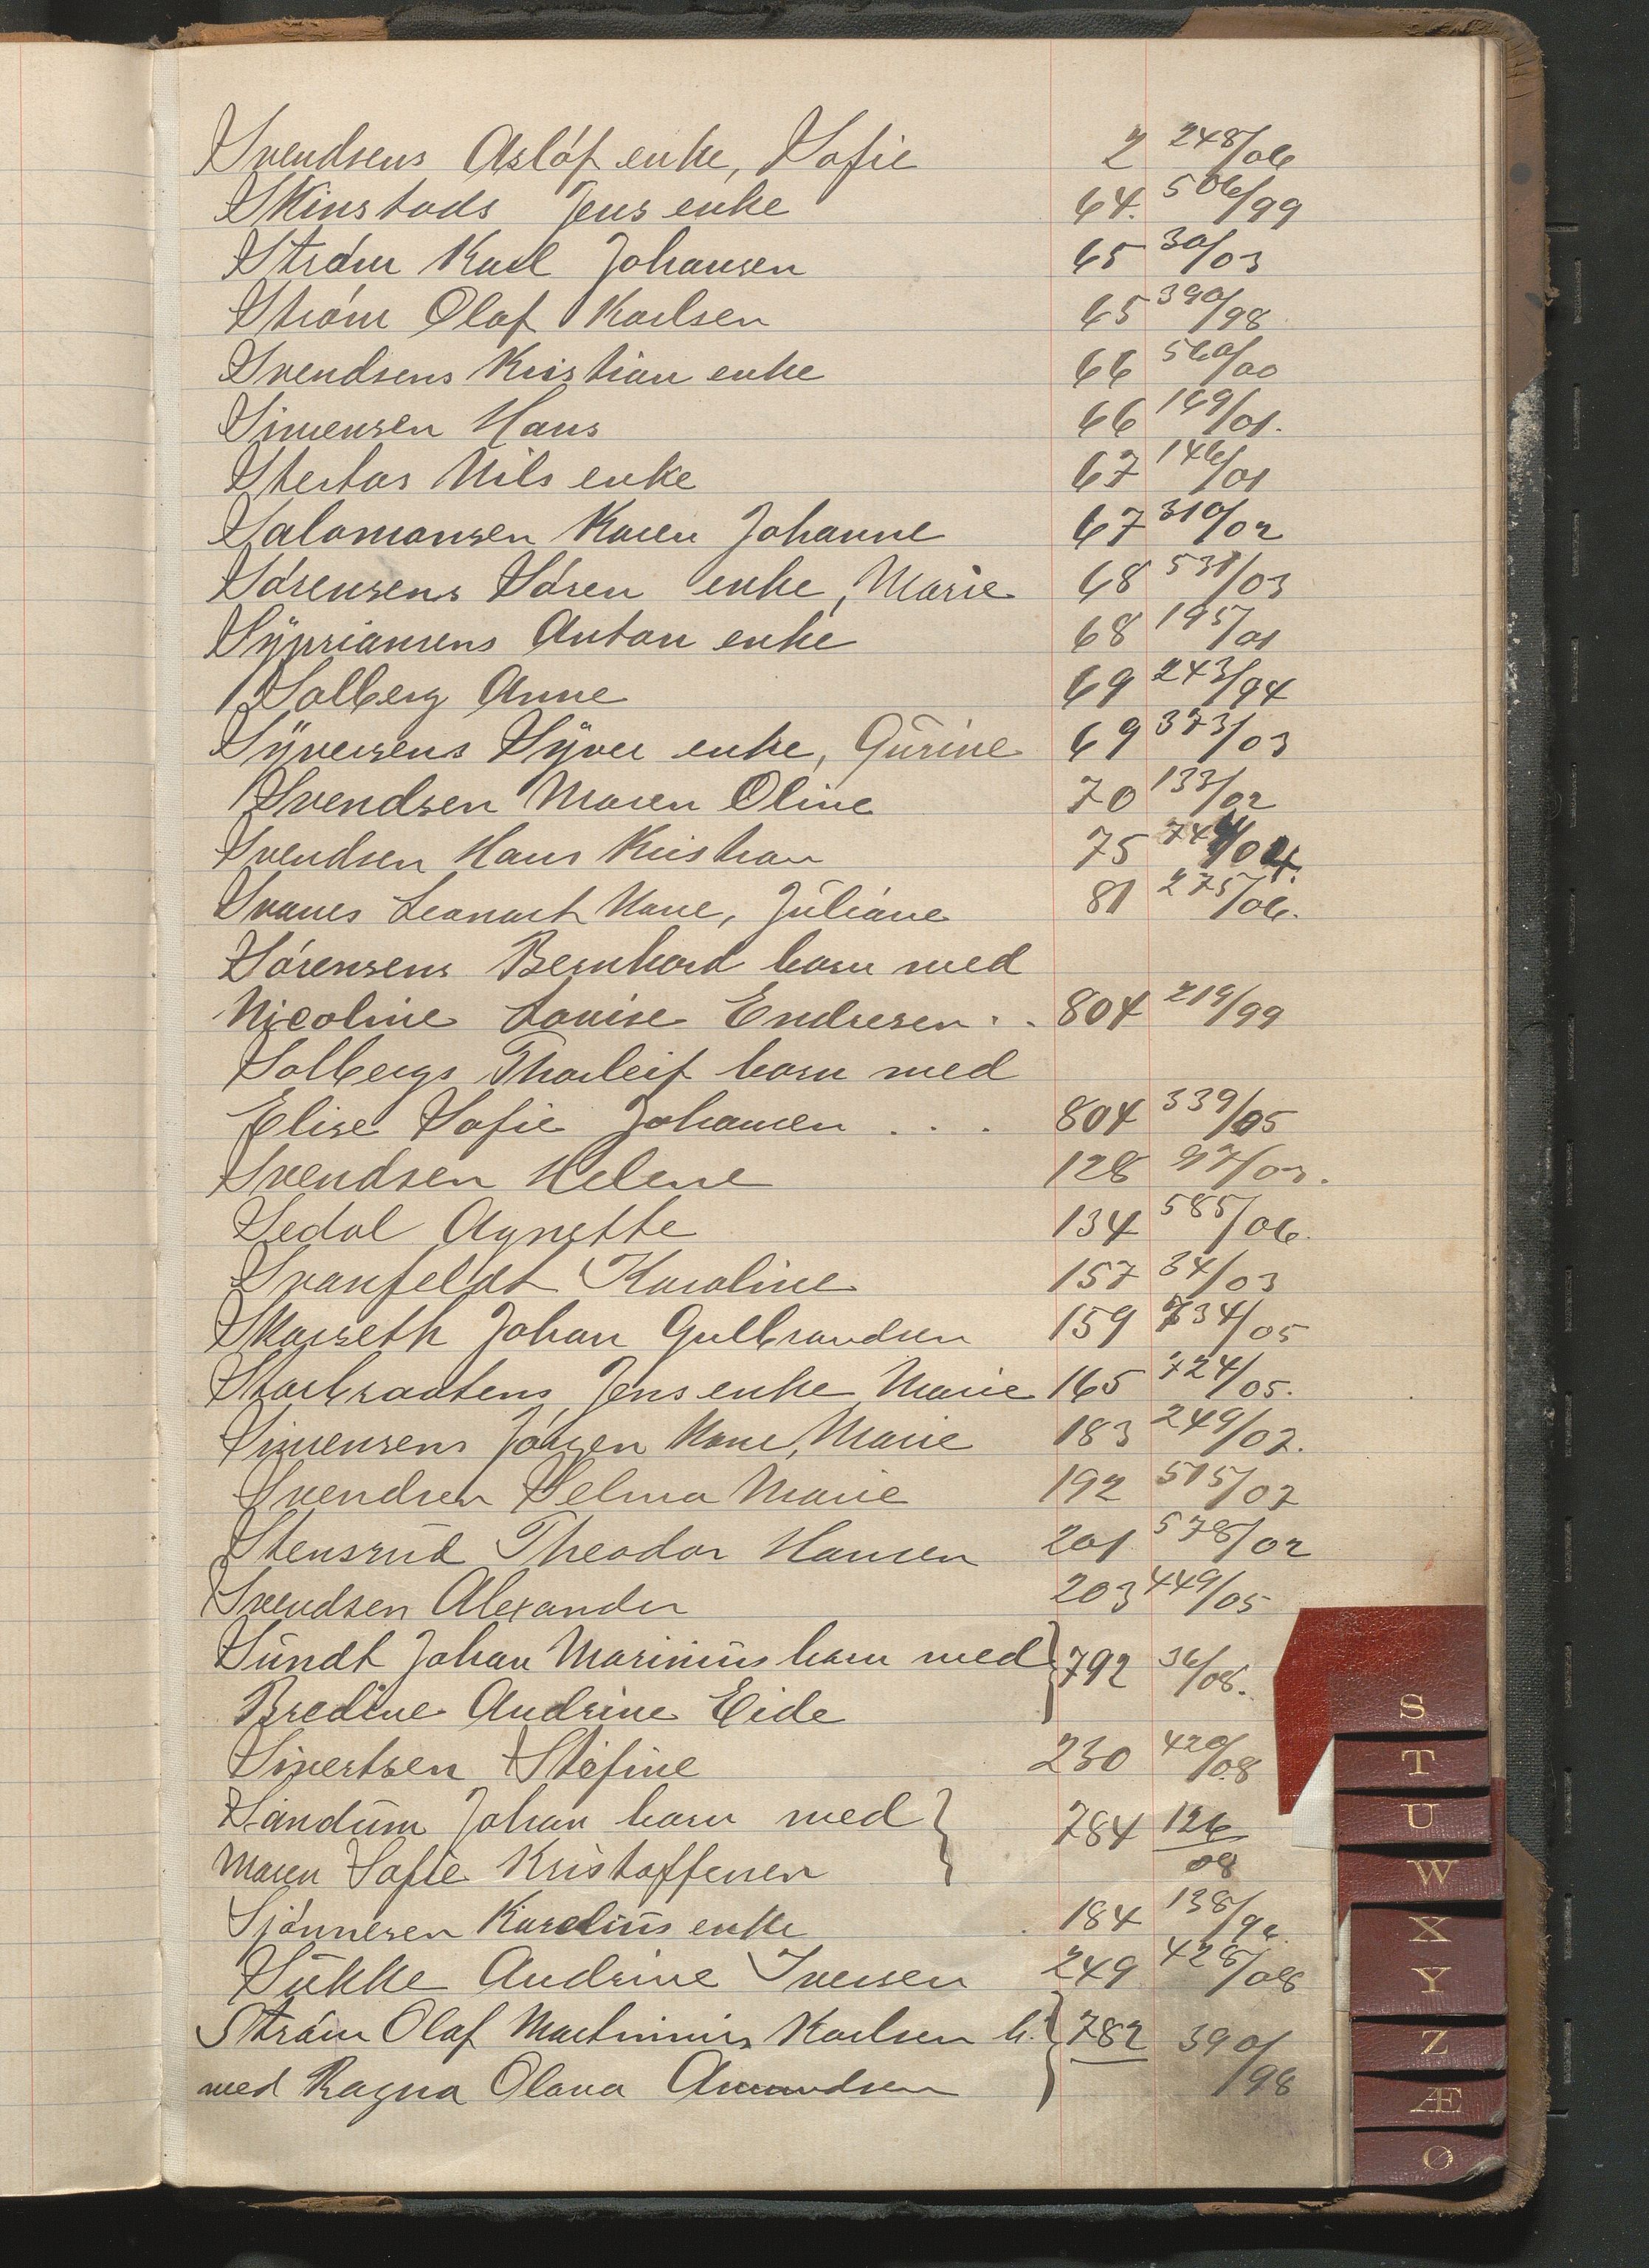 Svendsens Asløf enke, Sofie 2 248/06
Skinstads Jens enke 64. 506/99
Strøm Karl Johansen 65 30/03
Strøm Olaf Karlsen 65 390/98
Svendsens Kristian enke 66 560/00
Simensen Hans 66 149/01.
Nils enke 67 146/01
Salomonsen Karen Johanne 67 310/02
Sørensens Søren enke, Marie 68 531/03
Sypriansens Anton enke 68 195/01
Solberg Anne 69 243/94
Syversens Syver enke, Gurine 69 373/03
Svendsen Maren Oline 70 133/02
Svendsen Hans Kristian 75 744/04.
Svanes Leonart Kone, Juliane 81 275/06.
Sørensens Bernhard barn med
Nicoline Lovise Endresen . . 804 219/99
Solbergs Thorleif barn med
Elise Sofie Johansen . . . 804 339/05
Svendsen Helene 128 97/03.
Sedal Agnette 134 585/06.
Svanfeldt Karoline 157 34/03
Skarseth Johan Gulbrandsen 159 734/05
Starbraatens Jens enke Marie 165 724/05.
Simensens Jørgen Kone, Marie 183 249/07.
Svendsen Selma Marie 192 515/07
Stensrud Theodor Hansen 201 578/02
Svendsen Alexander 203 449/05
Sundt Johan Marinius barn med 792 36/08.
Bredine Andrine Eide
Sivertsen Stefine 230 420/08
Sandum Johan barn med 784 126/08
Maren Sofie Kristoffersen
Sjønnesen Karelius enke 184 138/96
Sukke Andrine Iversen 249 428/08
Strøm Olaf Martinius Karlsen b. 782 390/98
med Ragna Olava Amundsen
S
T
U
W
X
Y
Z
Æ
Ø